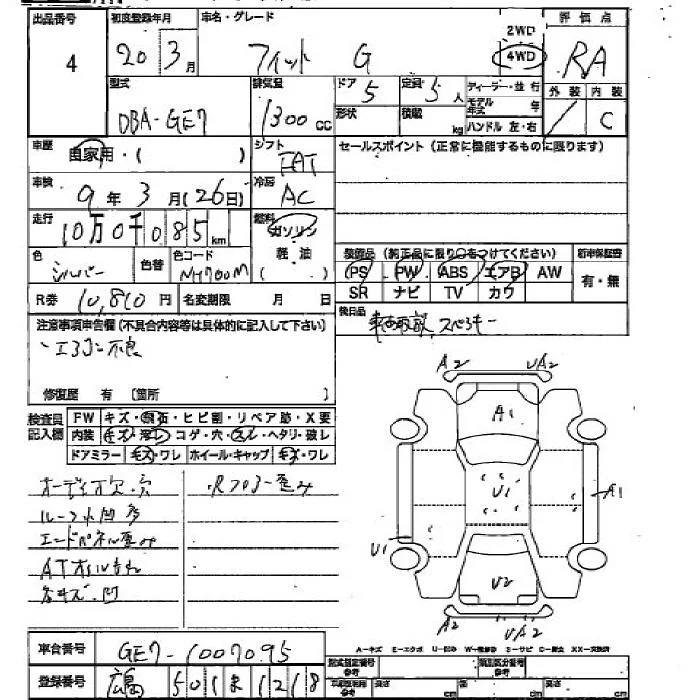 出品番号 初度登録年月 車名・グレード 2WD 評価点
4 20 3月 フィット G 4WD RA
型式 排気量 ドア 5 定員 5人 ディーラー・並行 外装 内装
DBA-GE7 1300 cc 形状 積載 kg モデル年式 年 ハンドル 左・右 C
車歴 自家用・( ) シフト FAT セールスポイント (正常に機能するものに限ります)
車検 9年3月(26日) 冷房 AC
走行 10万0千085km 燃料 ガソリン
色 シルバー 色替 色コード NH700M 軽油 ( )
装備品 (純正品に限り○をつけてください) 新車保証書
PS PW ABS エアB AW 有・無
SR ナビ TV カワ
R券 10,810円 名変期限 月 日
後日品 車両取説、スペアキー
注意事項申告欄 (不具合内容等は具体的に記入して下さい)
・エアコン不良
修復歴 有 〔箇所 〕
検査員記入欄 FW キズ・飛石・ヒビ割・リペア跡・X要
内装 キズ・汚レ・コゲ・穴・スレ・ヘタリ・破レ
ドアミラー キズ・ワレ ホイール・キャップ キズ・ワレ
オーディオ欠.穴 .Rフロアー歪み
ルーフ小凹多
エンドパネル歪み
ATオイル
各キズ.凹
A2 UA2
A1
U1
A1
U1
U2
A2 UA2
A-キズ E-エクボ U-凹み W-補修跡 S-サビ C-腐食 XX-交換済
車台番号 GE7-1007095
登録番号 広島 501 ま 1218
型式指定番号 参考 類別区分番号 参考
長さ cm 幅 cm 高さ cm